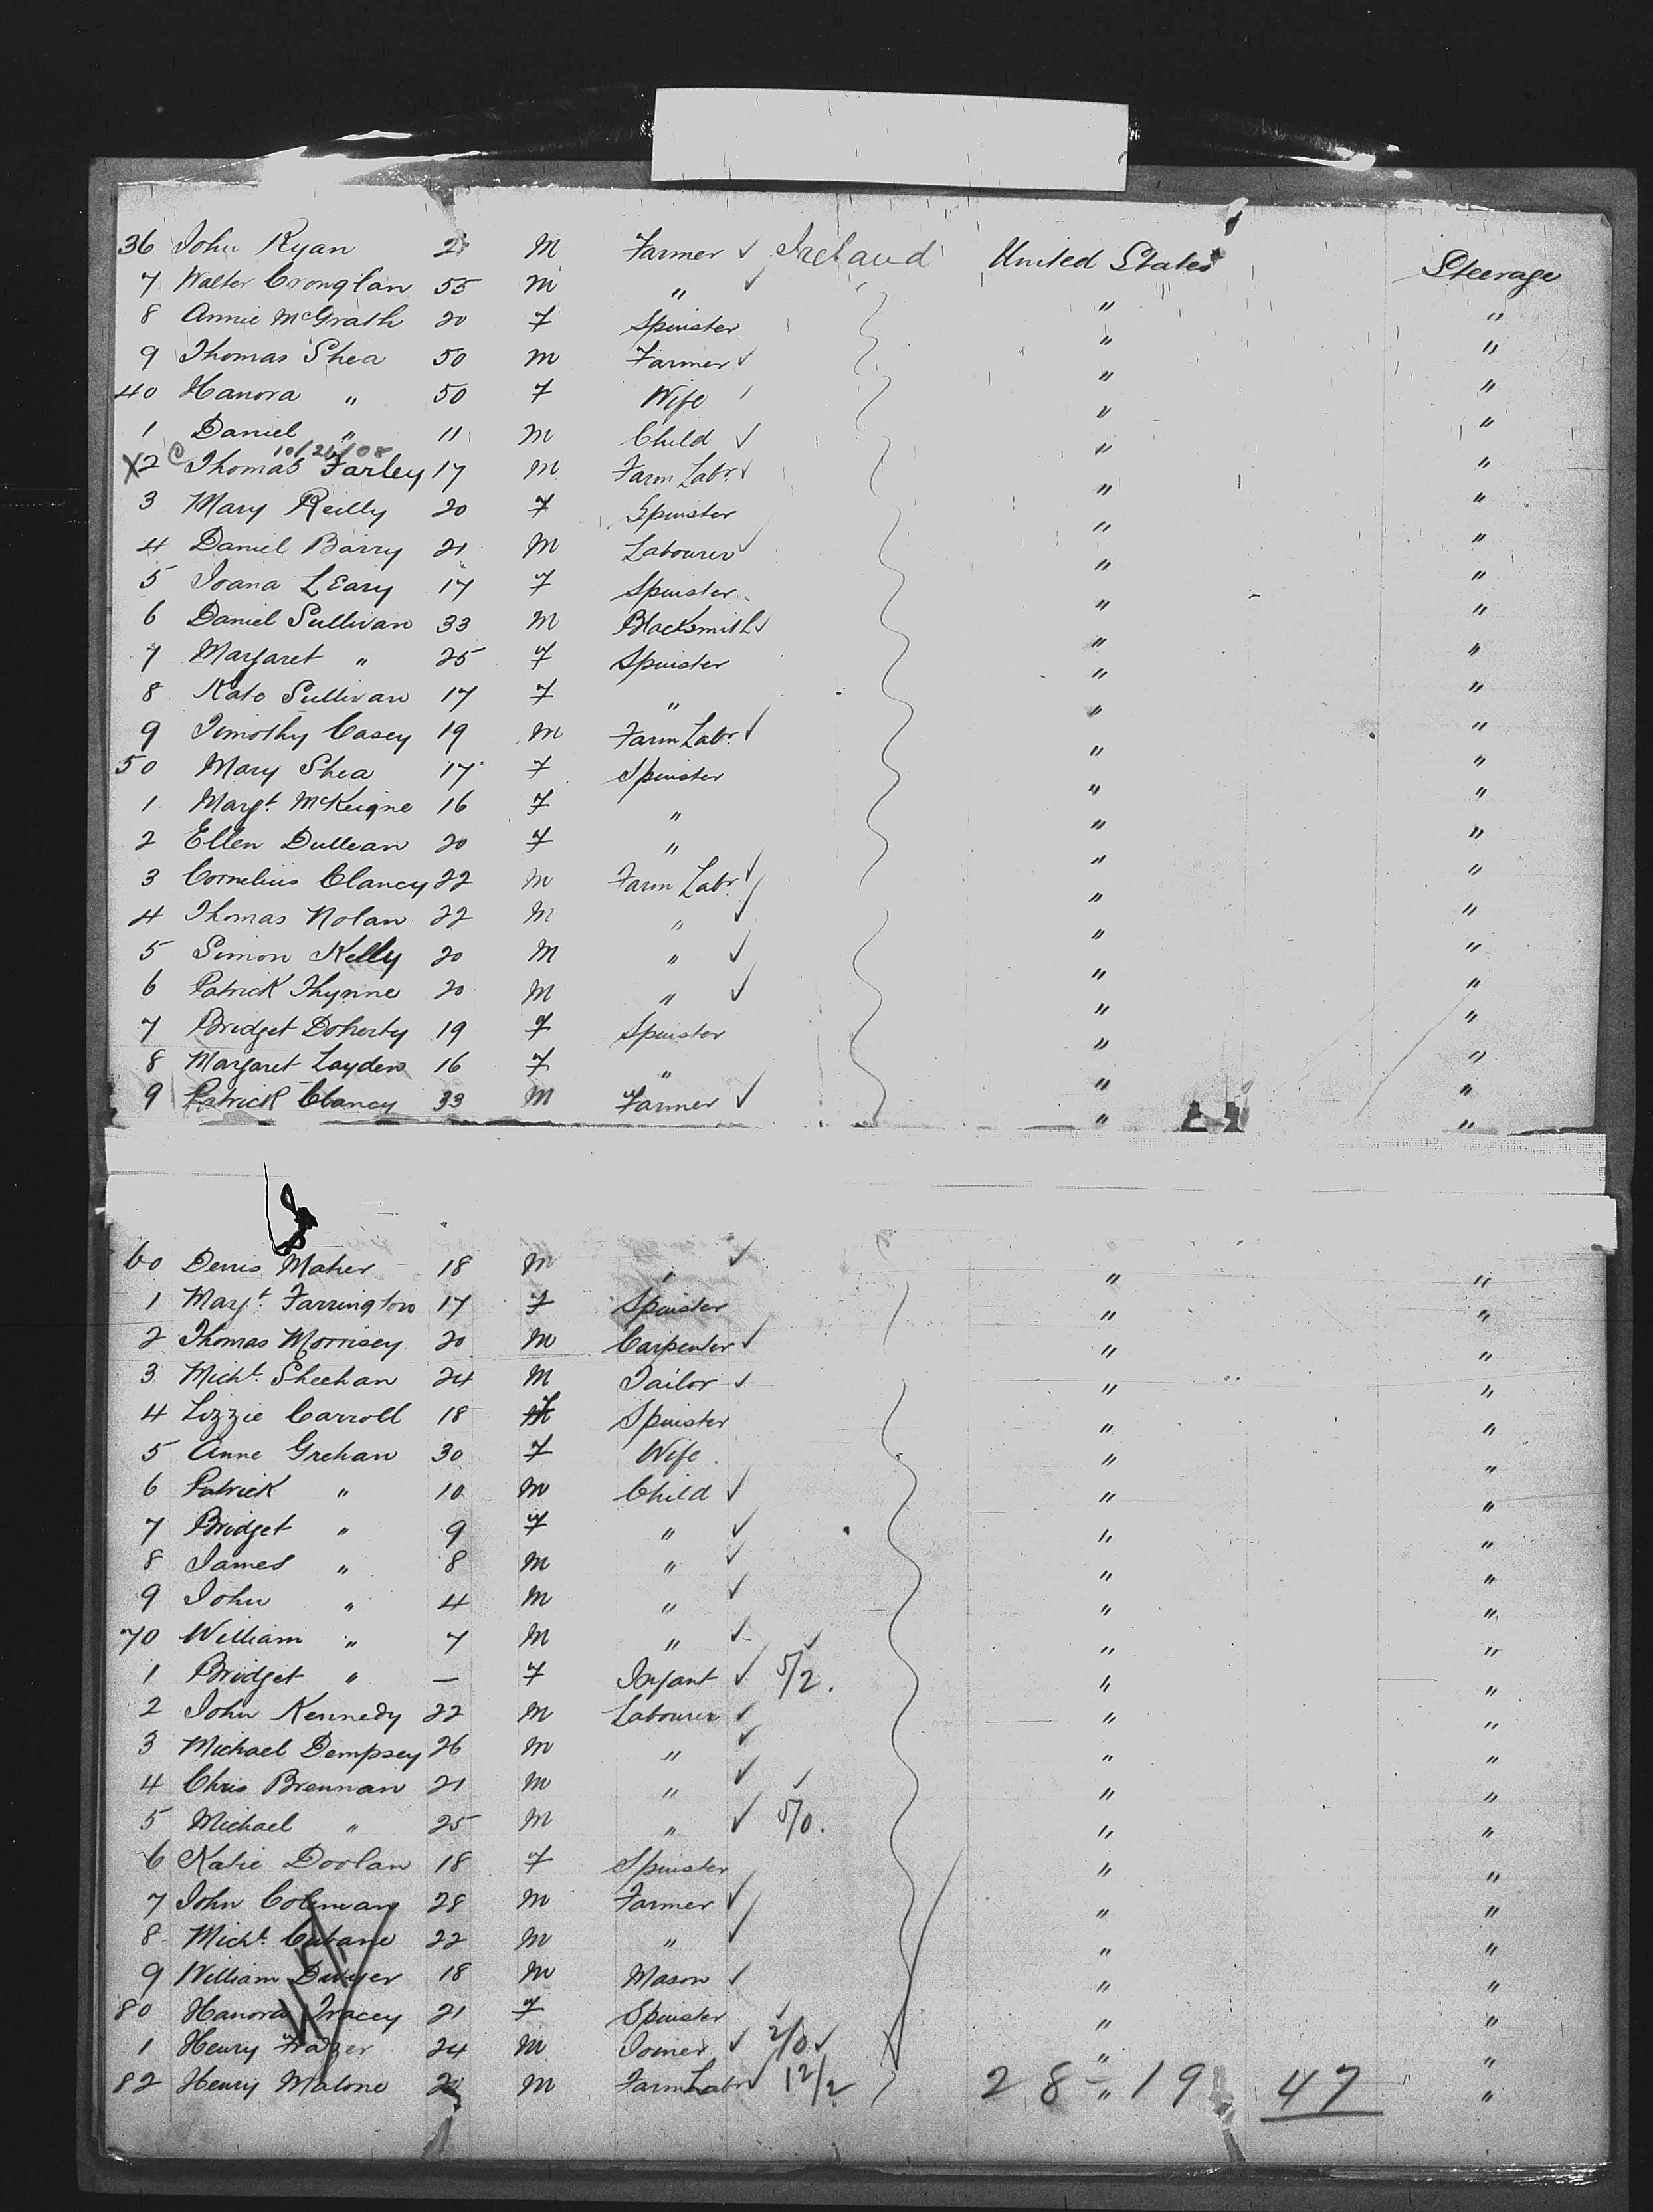 36 John Ryan M Farmer ✓ Ireland United States Steerage
7 Walter Cronglan 55 M " ✓ " "
8 Annie McGrath 20 F Spinster " "
9 Thomas Shea 50 M Farmer ✓ " "
40 Hanora " 50 F Wife " "
1 Daniel " 11 M Child ✓ " "
10/21/08
X2 Thomas Farley 17 M Farm Labr. ✓ " "
3 Mary Reilly 20 F Spinster " "
4 Daniel Barry 21 M Labourer ✓ " "
5 Joana LEary 17 F Spinster " "
6 Daniel Sullivan 33 M Blacksmith ✓ " "
7 Margaret " 25 F Spinster " "
8 Kate Sullivan 17 F " " "
9 Timothy Casey 19 M Farm Labr. ✓ " "
50 Mary Shea 17 F Spinster " "
1 Margt. McKeigne 16 F " " "
2 Ellen Dullean 20 F " " "
3 Cornelius Clancy 22 M Farm Labr. ✓ " "
4 Thomas Nolan 22 M " ✓ " "
5 Simon Kelly 20 M " ✓ " "
6 Patrick Thynne 20 M " ✓ " "
7 Bridget Doherty 19 F Spinster " "
8 Margaret Layden 16 F " " "
9 Patrick Clancy 33 M Farmer ✓ " "
60 Denis Maher 18 M " ✓ " "
1 Margt. Farrington 17 F Spinster " "
2 Thomas Morrisey 20 M Carpenter ✓ " "
3 Michl. Sheehan 24 M Tailor ✓ " "
4 Lizzie Carroll 18 F Spinster " "
5 Anne Grehan 30 F Wife " "
6 Patrick " 10 M Child ✓ " "
7 Bridget " 9 F " ✓ " "
8 James " 8 M " ✓ " "
9 John " 4 M " ✓ " "
70 William " 7 M " ✓ ✓ " "
1 Bridget " — F Infant ✓ 5/2. " "
2 John Kennedy 22 M Labourer ✓ " "
3 Michael Dempsey 26 M " ✓ " "
4 Chris Brennan 21 M " ✓ ✓ " "
5 Michael " 25 M " ✓ 5/0. " "
6 Katie Doolan 18 F Spinster " "
7 John Coleman 28 M Farmer ✓ " "
8 Michl. Cubane 22 M " ✓ " "
9 William Dwyer 18 M Mason ✓ " "
80 Hanora Tracey 21 F Spinster ✓ " "
1 Henry Frazer 24 M Joiner ✓ 2/0 ✓ " "
82 Henry Malone M Farm Labr ✓ 12/2 " "
28 - 19 47